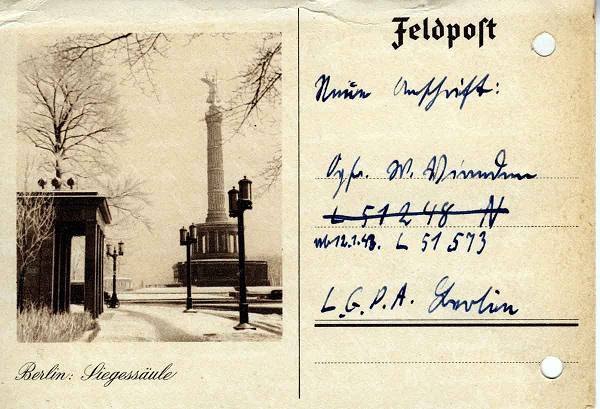 Feldpost
Neue Anschrift:
W. Vianden
L 51248 N
ab 12.1.43. L 51573
L.G.P.A. Berlin
Berlin: Siegessäule